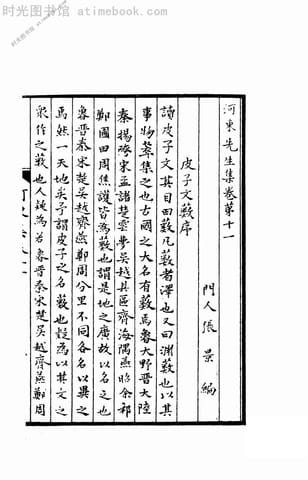 时光图书馆 - www.atimebook.com
河東先生集卷第十一
門人張景編
皮子文藪序
讀皮子文其目曰藪凡藪者澤也又曰淵藪也以其
事物萃集之也古國之大名有藪焉魯大野晉大陸
秦楊陓宋孟諸楚雲夢吳越具區齊海隅燕昭余祁
鄭圃田周焦護皆為藪也謂是地之廣故以名之也
魯晉秦宋楚吳越齊燕鄭周分里不同各名以異之
焉然一天地矣予謂皮子之名藪也豈為以其文之
眾作之藪也人謂為若魯晉秦宋楚吳越齊燕鄭周
时光图书馆 - www.atimebook.com